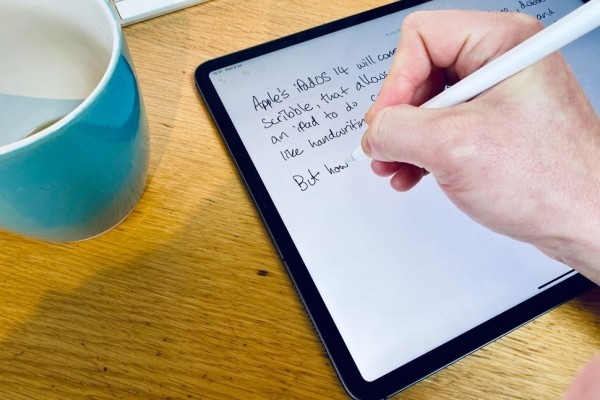 Apple's iPadOS 14 will
scribble, that allows
an iPad to do
like handwriting
But how